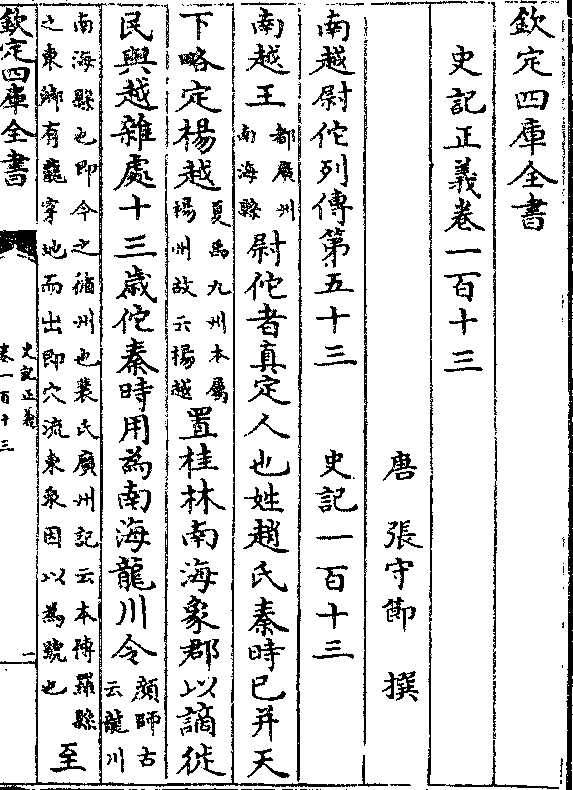 欽定四庫全書
史記正義卷一百十三
唐 張守節 撰
南越尉佗列傳第五十三 史記一百十三
南越王都廣州南海縣尉佗者真定人也姓趙氏秦時已并天
下略定楊越夏為九州本屬揚州故云揚越置桂林南海象郡以謫徙
民與越雜處十三歲佗秦時用為南海龍川令顔師古云龍川
南海縣也即今之循州也裴氏廣州記云本博羅縣之東鄉有龍穿地而出即穴流東泉因以為號也至
欽定四庫全書
史記正義
卷一百十三
二